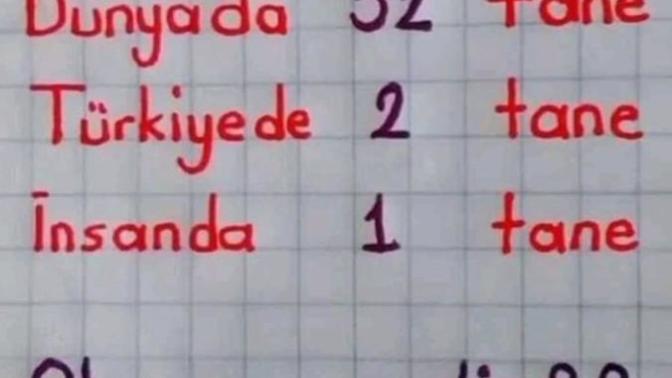 Dünyada 52 tane
Türkiyede 2 tane
İnsanda 1 tane